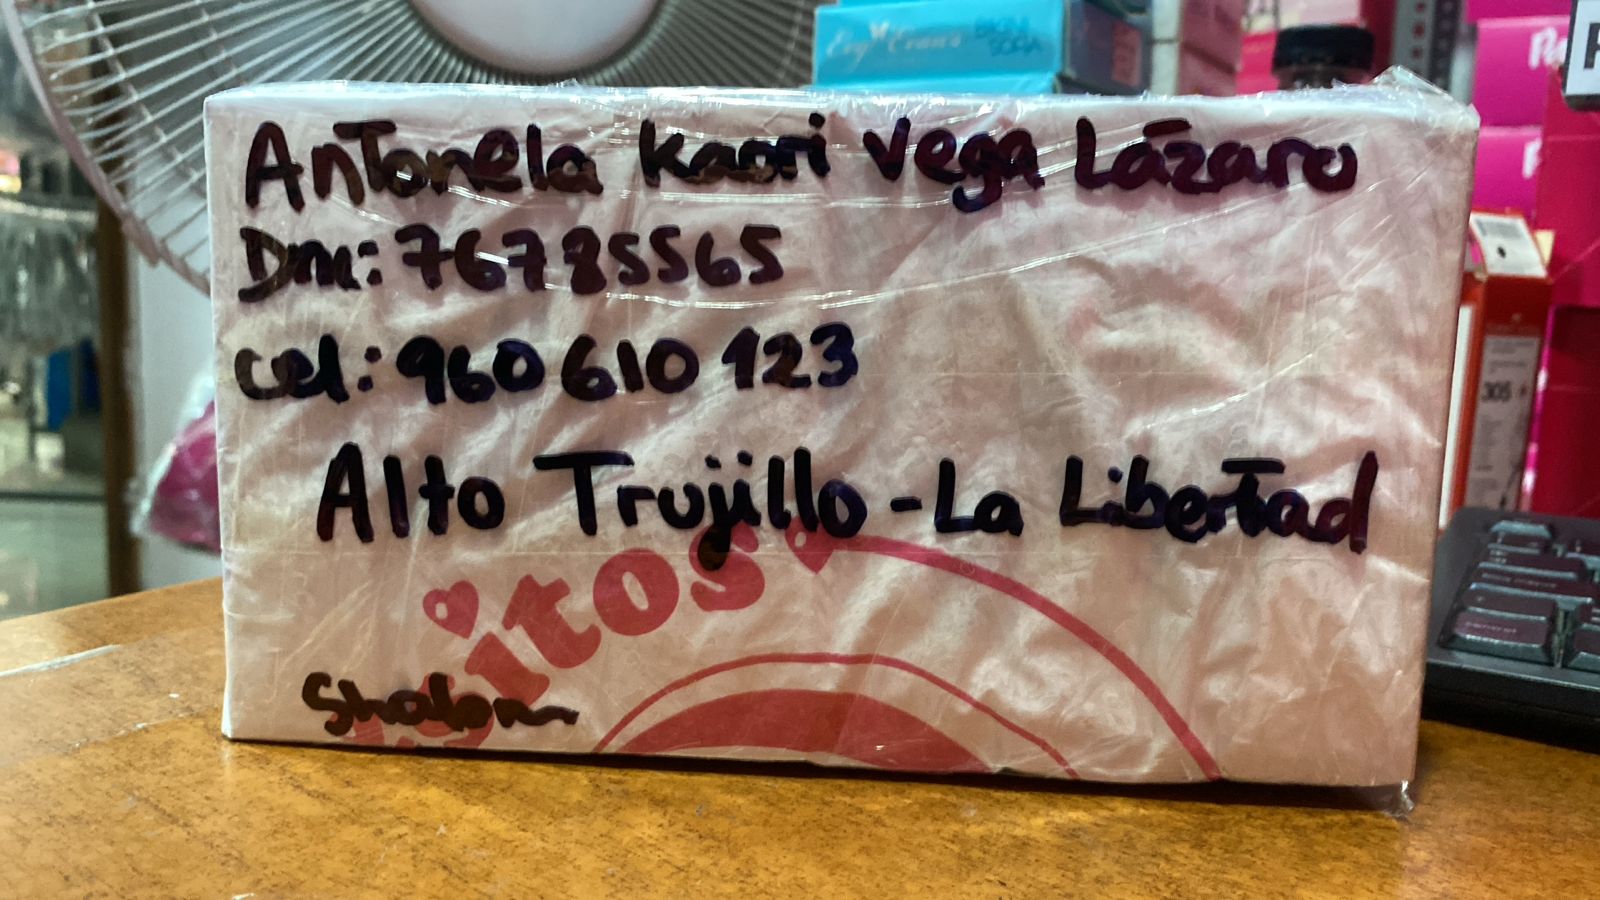 Antonela Kaori Vega Lázaro
Dni: 76785565
cel: 960 610 123
Alto Trujillo - La Libertad
sitos
Shalom
305
control